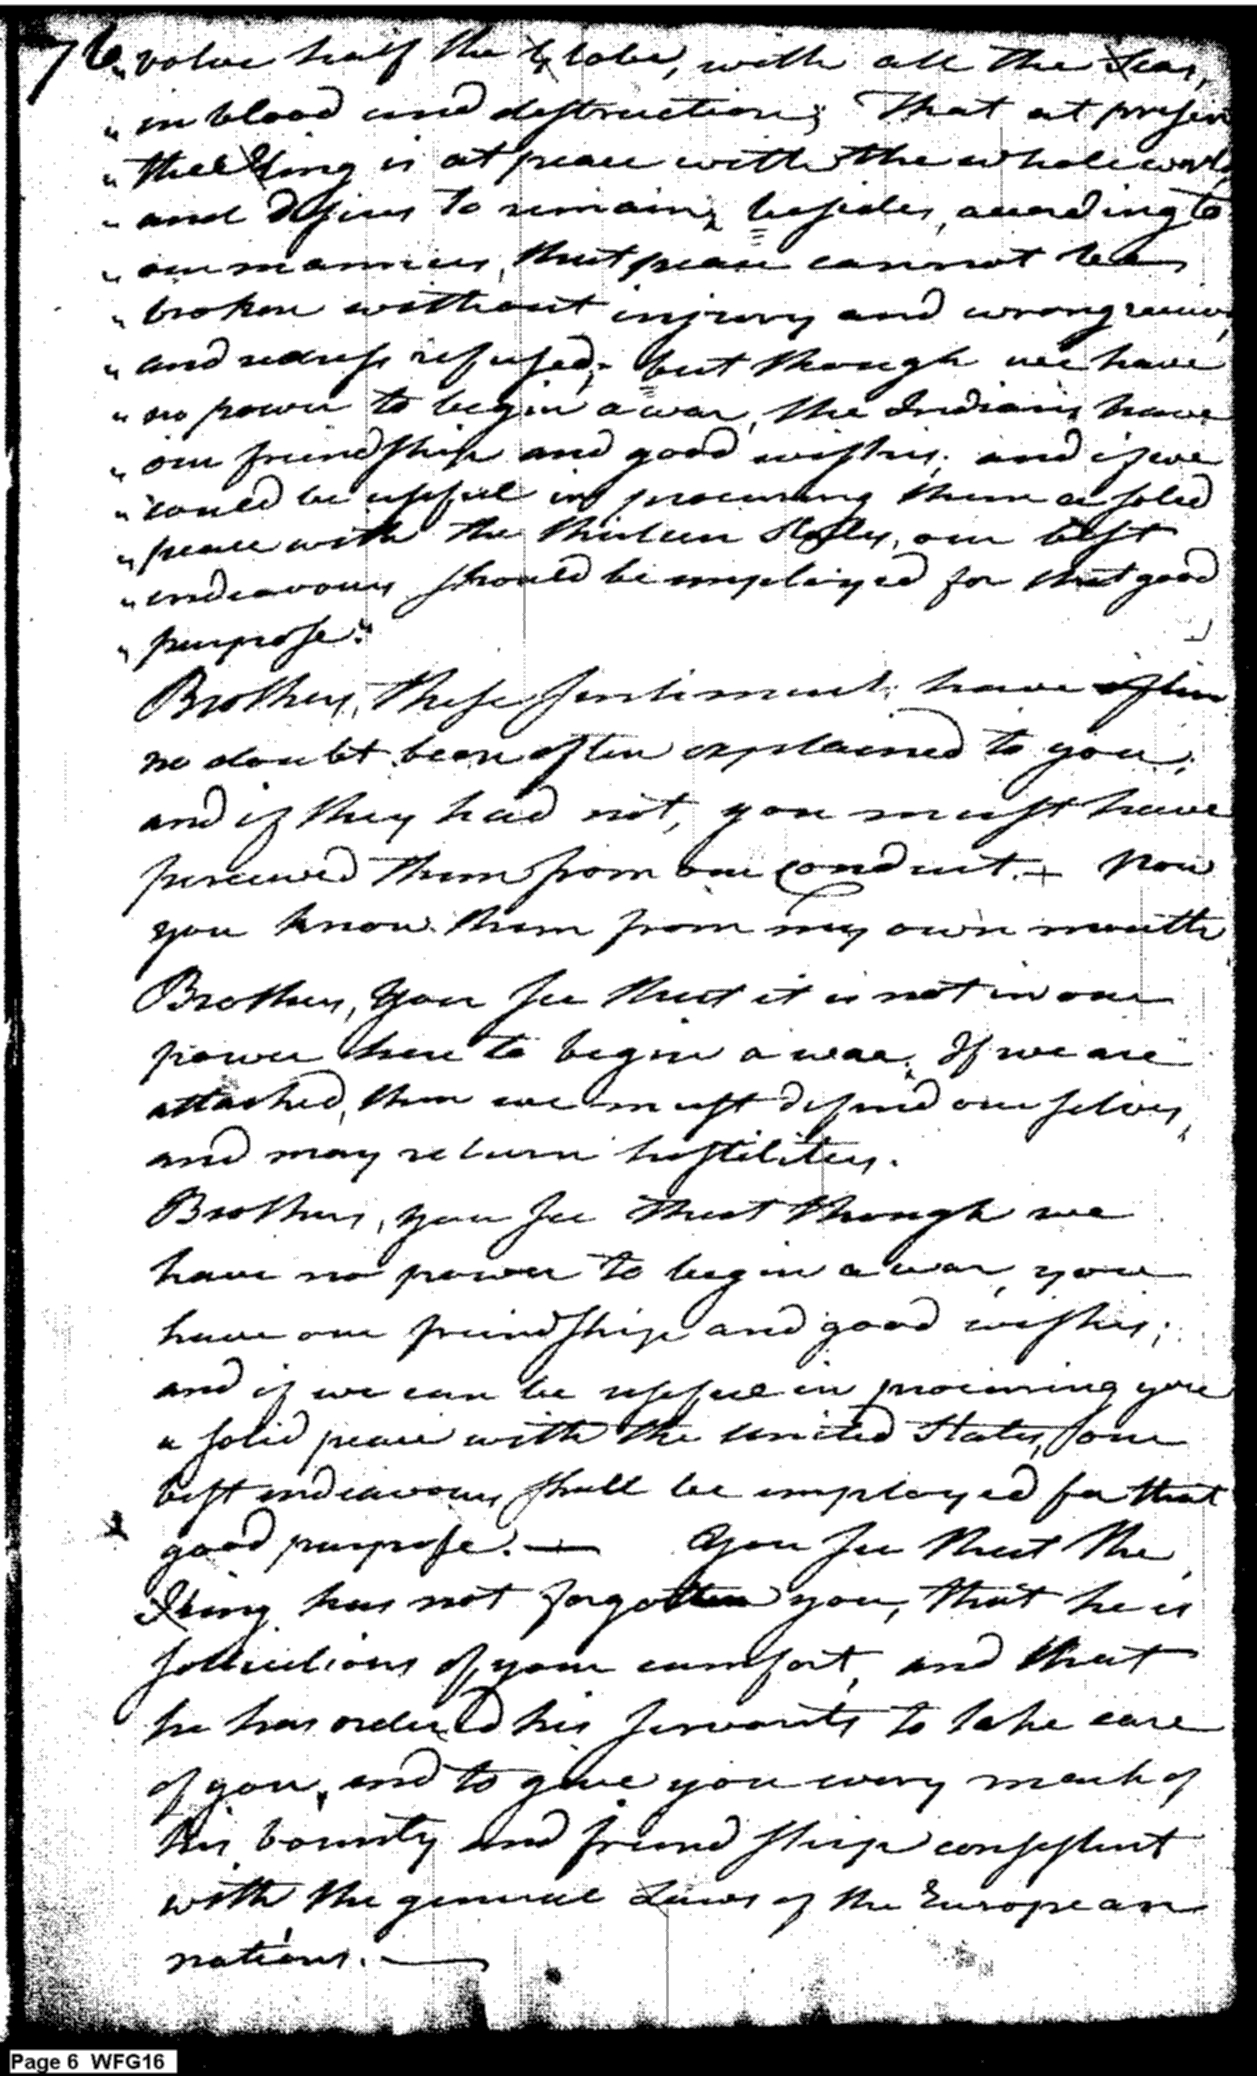 76 "volve half the Globe, with all the Seas,
"in blood and destruction; That at presen
"the King is at peace with the whole world
"and desires to remain; besides, according to
"our manners, that peace cannot be
"broken without injury and wrong
"and redress refused; but though we have
"no power to begin a war, the Indians have
"our friendship and good wishes; and if we
"could be useful in procuring them a solid
"peace with the thirteen States, our best
"endeavours should be employed for that good
"purpose."
Brothers, these sentiments have often
no doubt been often explained to you;
and if they had not, you must have
perceived them from our conduct. — Now
you know them from my own mouth
Brothers, you see that it is not in our
power here to begin a war. If we are
attacked, then we must defend ourselves,
and may return hostilities.
Brothers, you see that though we
have no power to begin a war, you
have our friendship and good wishes;
and if we can be useful in procuring you
a solid peace with the United States, our
best endeavours shall be employed for that
good purpose. — You see that the
King has not forgotten you, that he is
sollicitious of your comfort, and that
he has ordered his servants to take care
of you, and to give you every mark of
his bounty and friendship consistent
with the general Laws of the European
nations. —
Page 6 WFG16